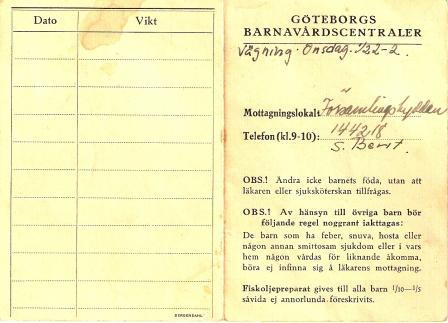 Dato Vikt
BERGENDAHL
GÖTEBORGS
BARNAVÅRDSCENTRALER
Vägning. Onsdag. 1/22-2.
Mottagningslokal: Församlingshyddan
Telefon (kl.9-10): 144218
S. Berit.
OBS.! Ändra icke barnets föda, utan att
läkaren eller sjuksköterskan tillfrågas.
OBS.! Av hänsyn till övriga barn bör
följande regel noggrant iakttagas:
De barn som ha feber, snuva, hosta eller
någon annan smittosam sjukdom eller i vars
hem någon vårdas för liknande åkomma,
böra ej infinna sig å läkarens mottagning.
Fiskoljepreparat gives till alla barn 1/10—1/5
såvida ej annorlunda föreskrivits.